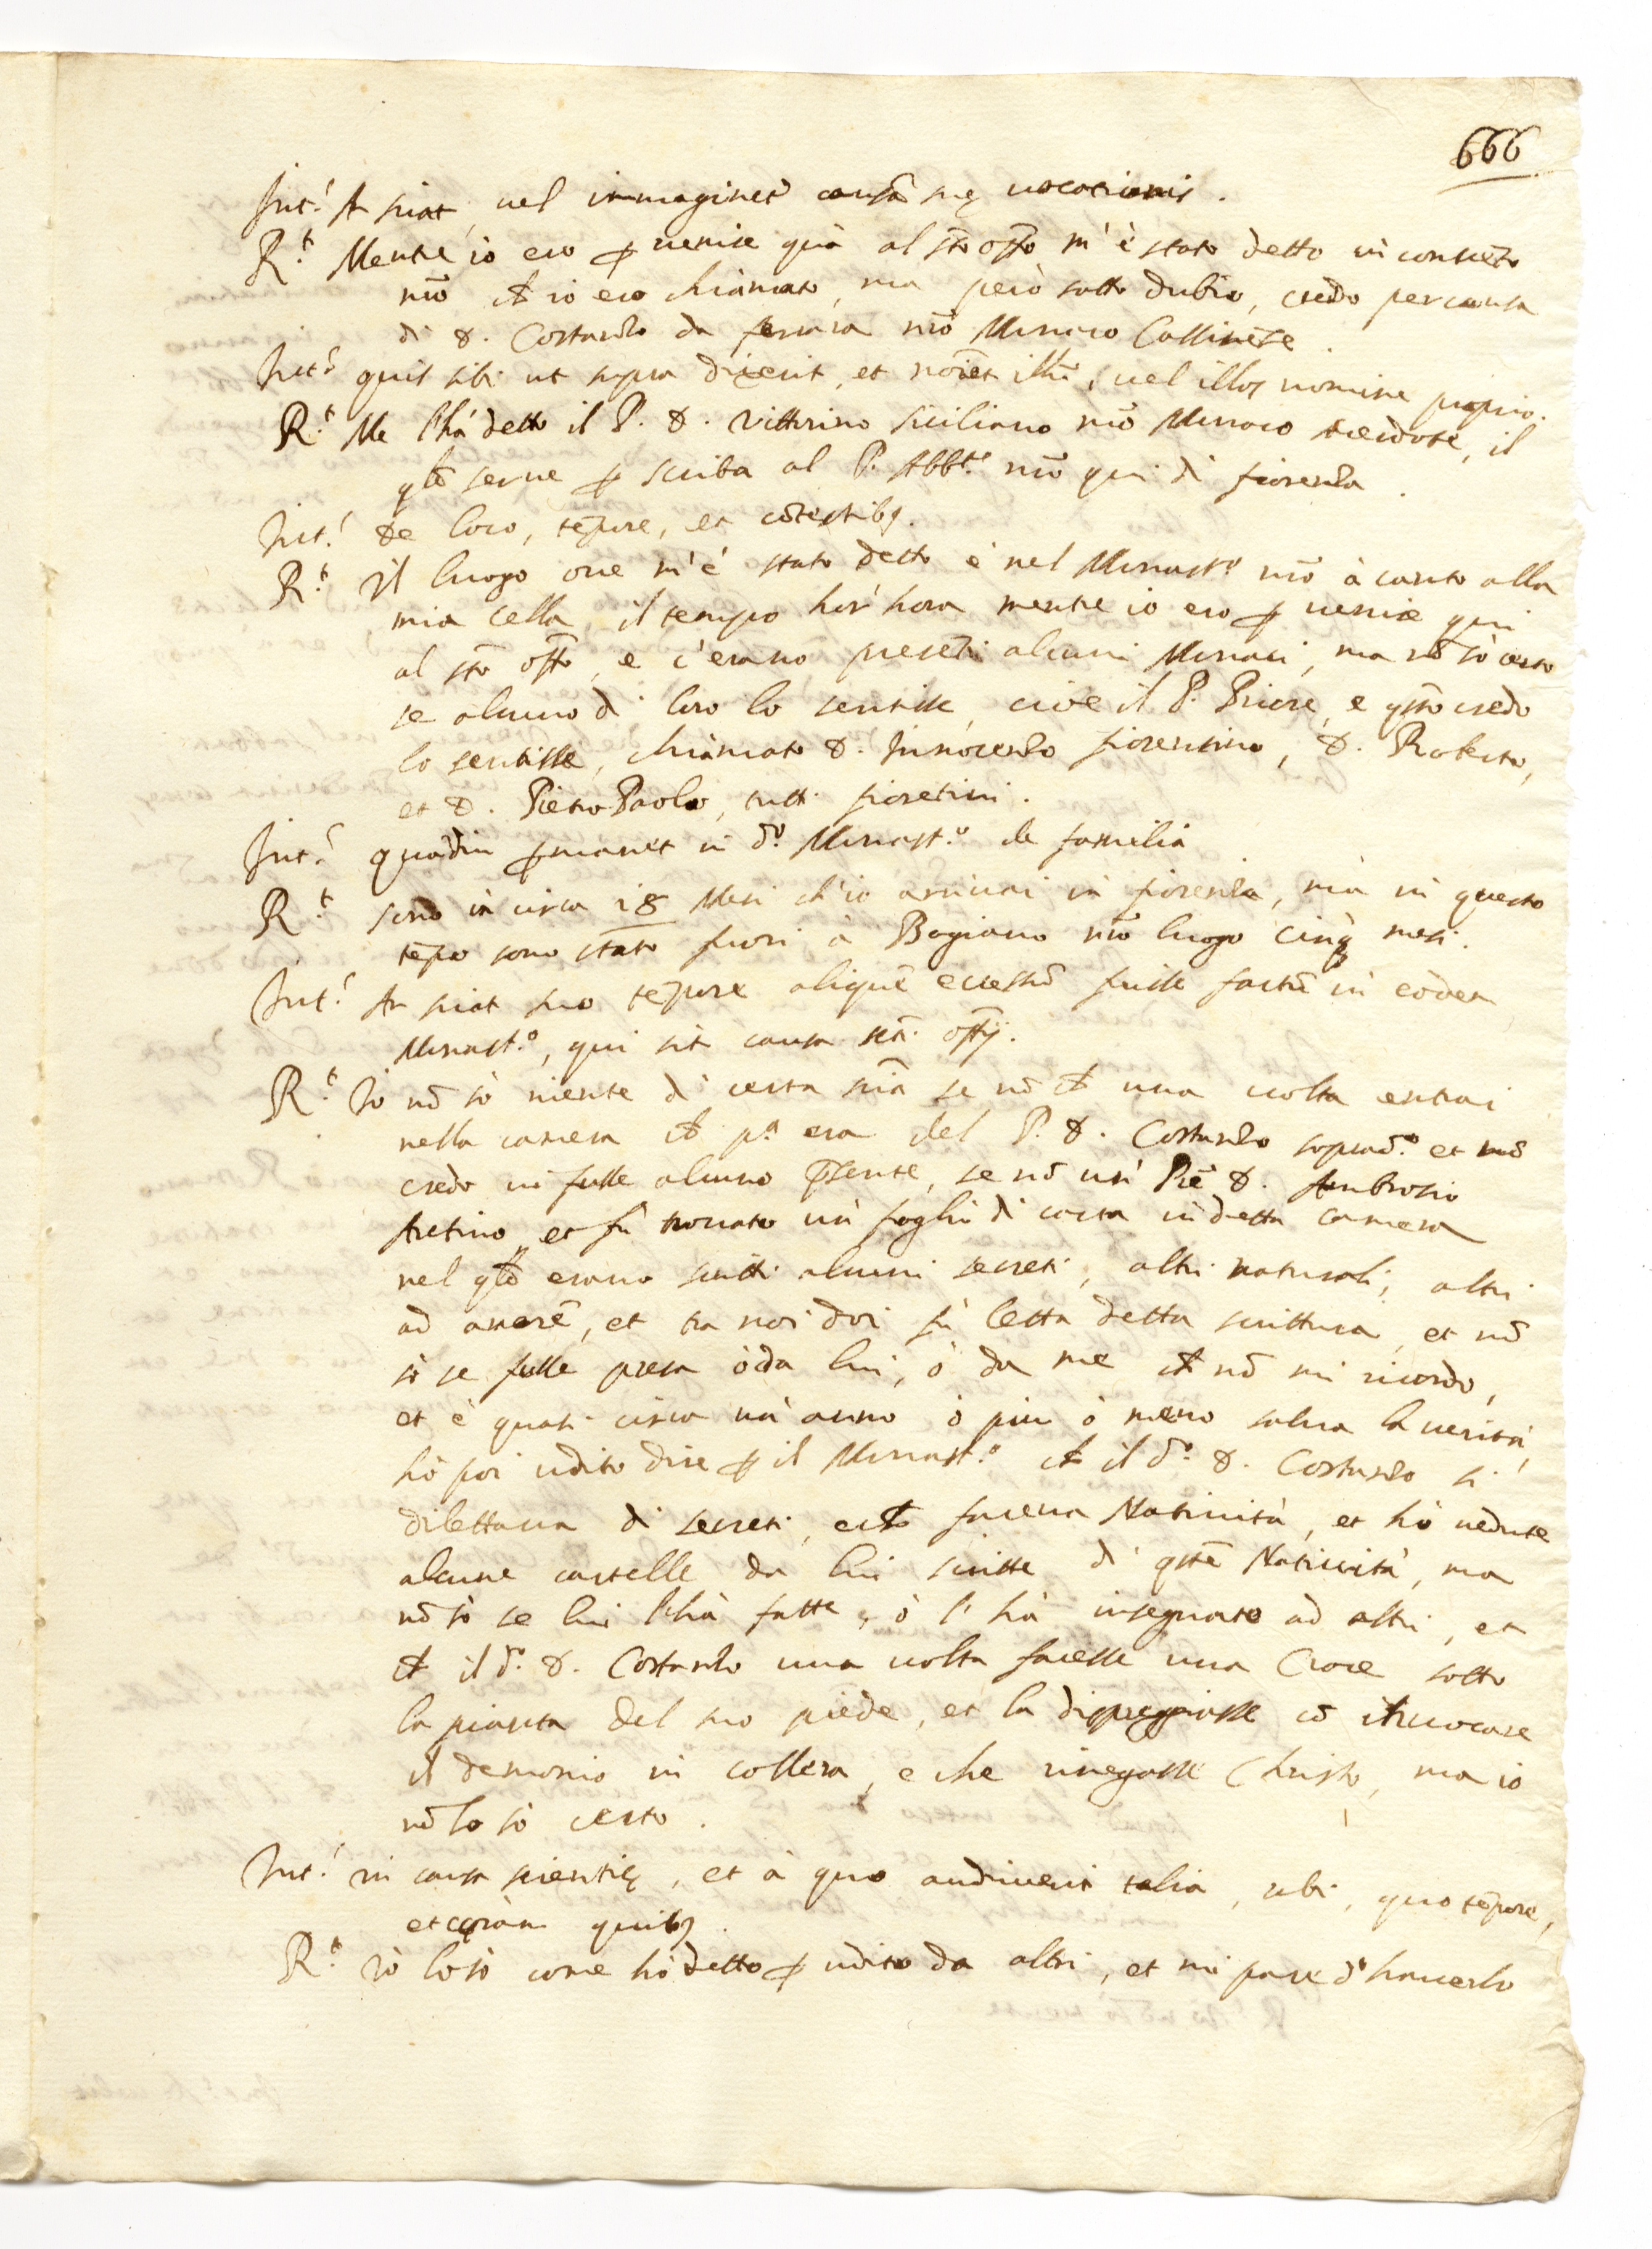 666
Int.s An sciat, vel immaginet causã suę vocationis.
R.t Mentre io ero ꝑ venire quà al sto offo m'è stato detto in conuẽto
nrõ ch io ero chiamato, ma però sotto dubio, credo per causa
di D. Costanzo da ferrara nrõ Monaco Cassinẽse.
Int.s quis sibi ut supra dixerit, et noiet illũ, vel illos nomine proprio.
R.t Me l'hà detto il P. D. Vittorino siciliano nrõ Monaco sacerdote, il
qle serue ꝑ scriba al P. Abbte nrõ qui di fiorenza.
Int.s de loco, tẽpore, et cõtestibꝫ.
R.t Il luogo oue m'è stato detto è nel Monast.o nrõ à canto alla
mia cella, il tempo hor' hora mentre io ero ꝑ venire qui
al sto offo, e c'erano presẽti alcuni Monaci, ma nõ sò certo
se alcuno di loro lo sentisse, cioè il P. Priore, e qsto credo
lo sentisse, chiamato D. Innocenzo fiorentino, D. Roberto,
et D. Pietro Paolo, tutti fioretini.
Int.s quãdiu ꝑmanet in d.o Monast.o de familia
R.t sono in circa 18 Mesi ch'io arriuai in fiorenza, mà in questo
tẽpo sono stato fuori à Bagiano nrõ luogo cinqꝫ mesi.
Int.s An sciat suo tẽpore aliquẽ excessũ fuisse factũ in eodem
Monast.o, qui sit causa sti offij.
R.t Io nõ sò niente di certa sciã se nõ ch una volta entrai
nella camera ch p.a era del P. D. Costanzo soprad.o et nõ
credo vi fusse alcuno p̃sente, se nõ un' Prẽ D. Ambrosio
Aretino, et fù trouato un' foglio di carta in detta camera
nel qle erano scritti alcuni secreti, altri naturali, altri
ad amorẽ, et tra noi doi fù letta detta scrittura, et nõ
sò se fusse presa ò da lui, ò da me ch nõ mi ricordo,
et è quasi circa un' anno ò più ò meno salua la verità,
hò poi udito dire ꝑ il Monast.o ch il d.o D. Costanzo si
dilettaua di secreti, e ch faceua Natiuità, et hò vedute
alcune cartelle da lui scritte di qste Natiuità, ma
nõ sò se lui l'hà fatte, ò l'hà insegnate ad altri, et
ch il d.o D. Costanzo una volta facesse una Croce sotto
la pianta del suo piede, et la dispreggiasse cõ inuocare
il demonio in collera, e che rinegasse Christo, ma io
nõ lo sò certo.
Int.s in causa scientię, et à quo audiuerit talia, ubi, quo tẽpore,
et coràm quibꝫ.
R.t Io lo sò come hò detto ꝑ udito da altri, et mi pare d'hauerlo